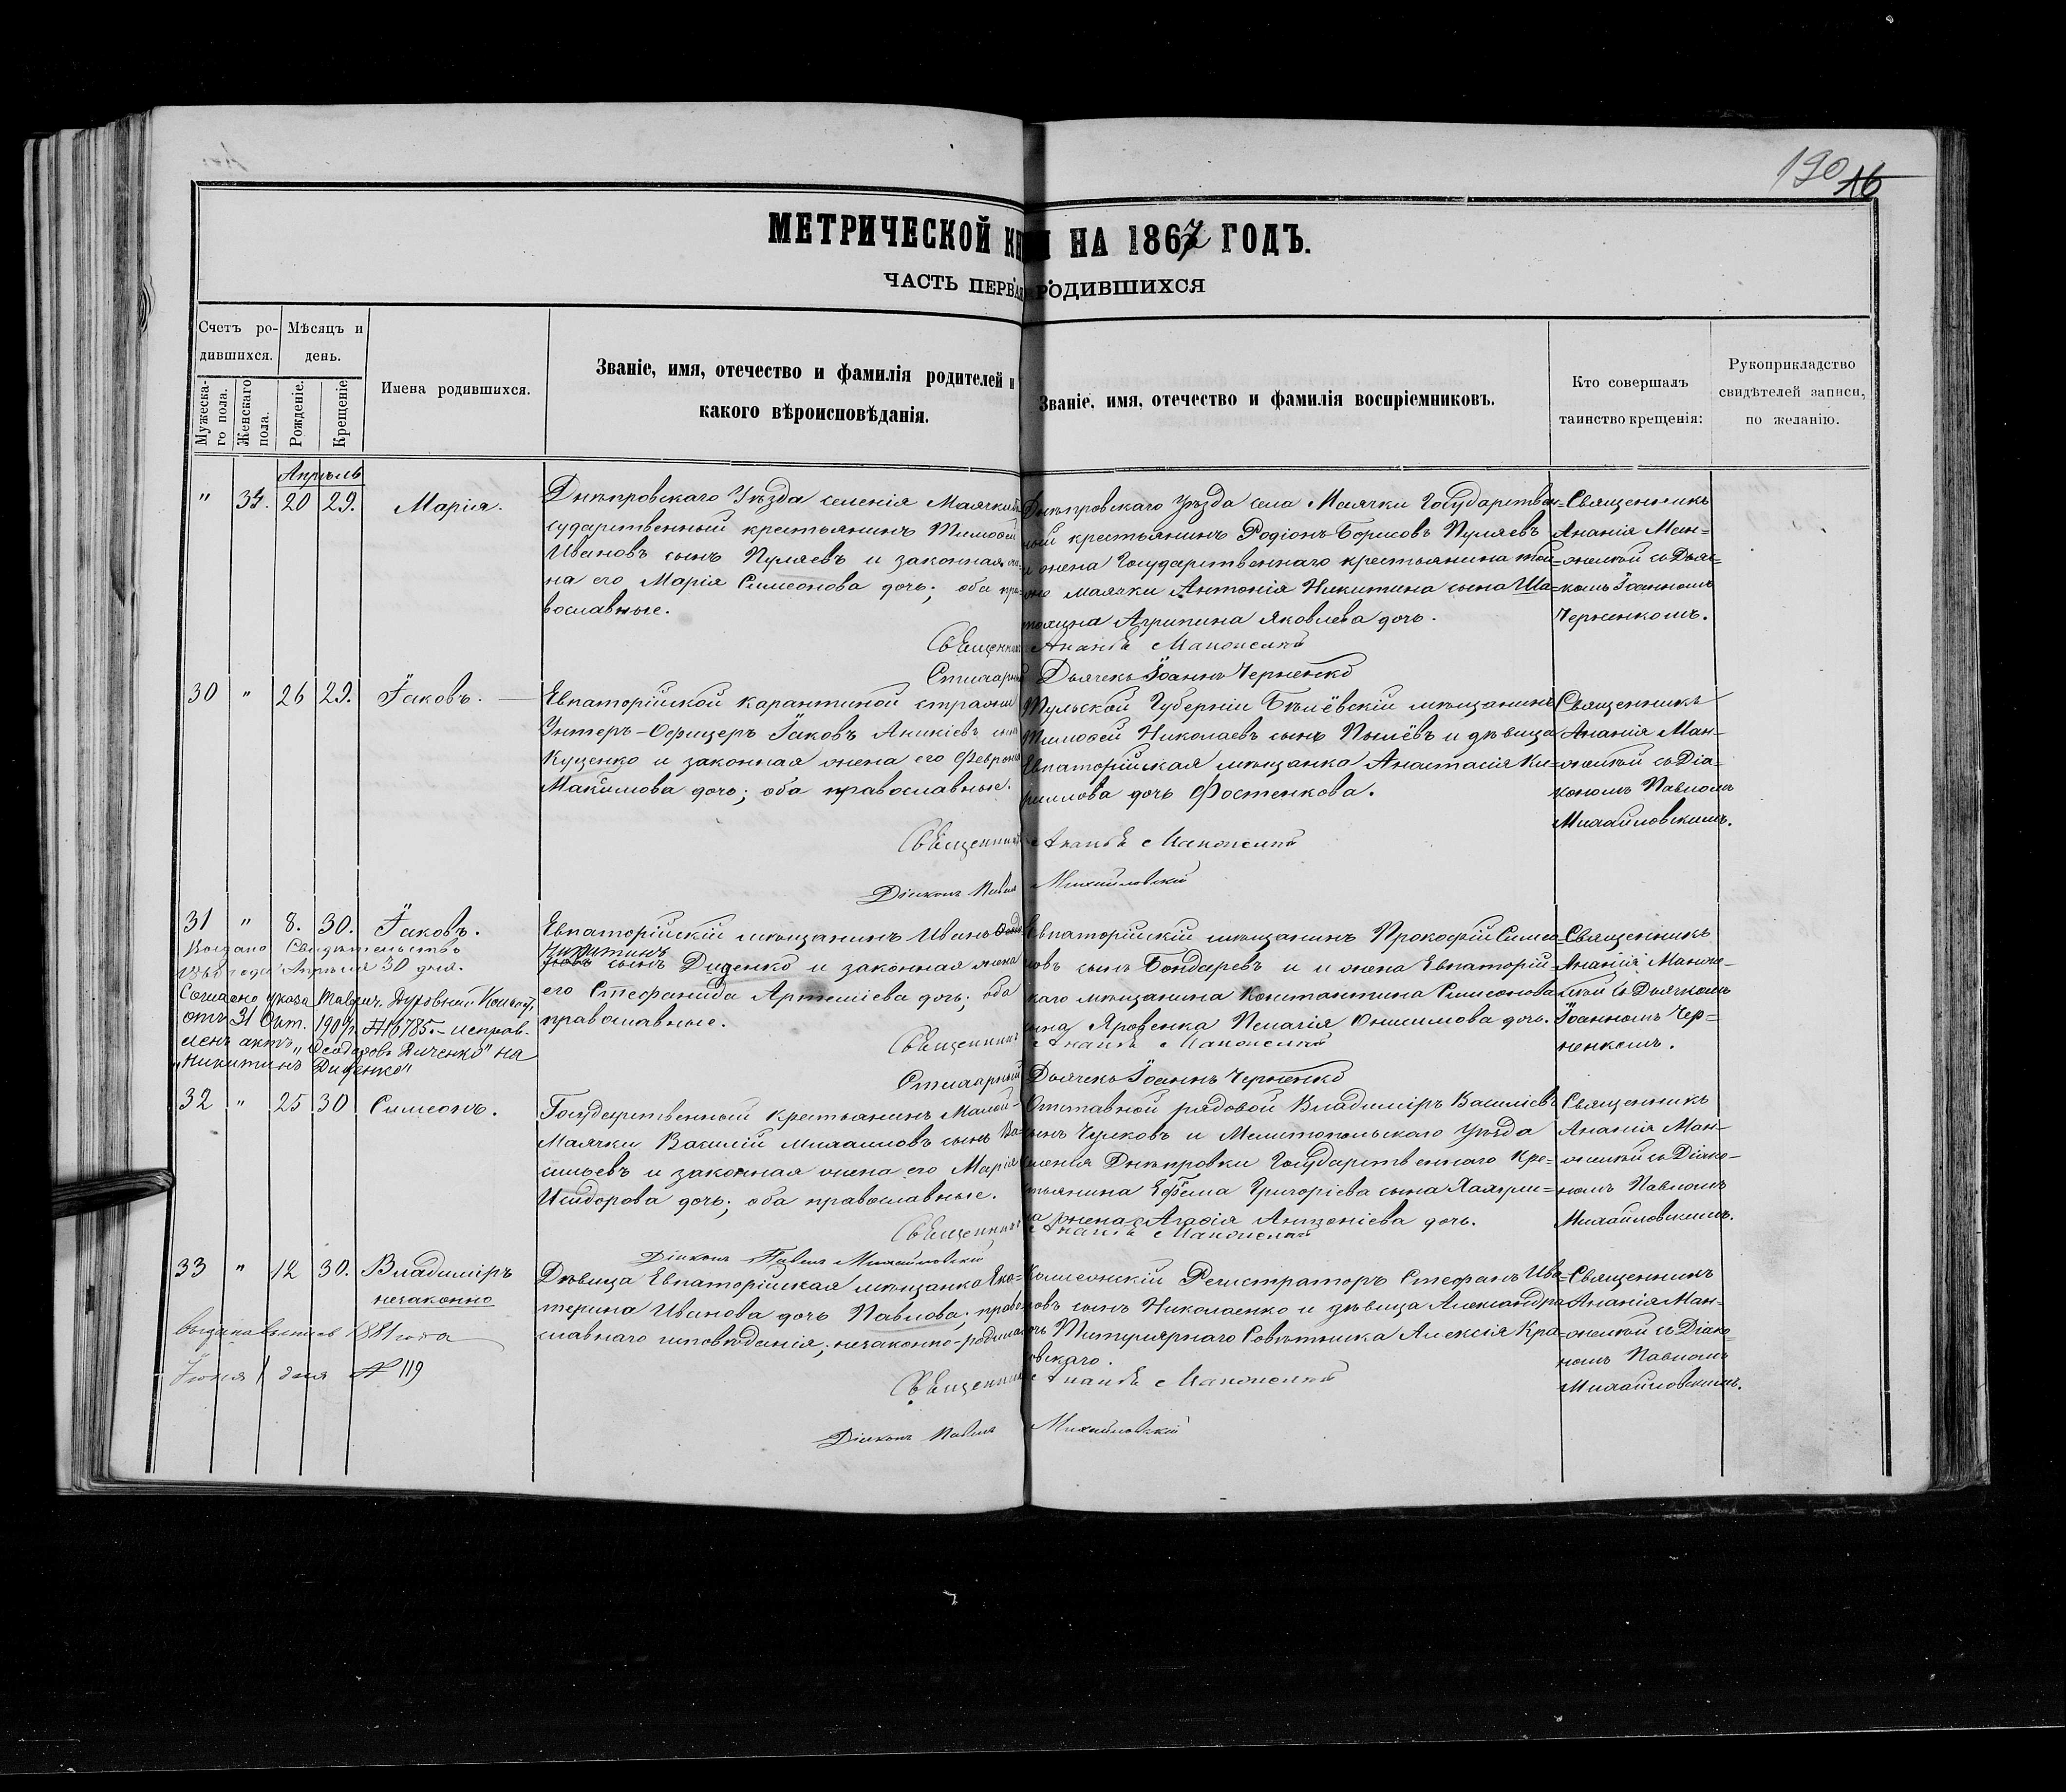 190 16
МЕТРИЧЕСКОЙ КН И НА 1867 ГОДЪ.
ЧАСТЬ ПЕРВАЯ РОДИВШИХСЯ
Счетъ ро-
дившихся.
Мѣсяцъ и
день.
Мужеска-
го пола.
Женскаго
пола.
Рожденіе.
Крещеніе
Имена родившихся.
Званіе, имя, отечество и фамилія родителей и
какого вѣроисповѣданія.
Званіе, имя, отечество и фамилія воспріемниковъ.
Кто совершалъ
таинство крещенія:
Рукоприкладство
свидѣтелей записи,
по желанію.
Апрѣль
" 34. 20 29. Марія.
Днѣпровскаго Уѣзда селенія Маячки
сударственный крестьянинъ Тимофей
Ивановъ сынъ Пуляевъ и законная же-
на его Марія Симеонова дочь; оба пра-
вославные.
Днѣпровскаго Уѣзда села Маячки Государствен=
ный крестьянинъ Родіонъ Борисовъ Пуляевъ
и жена Государственнаго крестьянина той=
же маячки Антонія Никитина сына Ша=
Агрипина Яковлева дочь.
Священникъ
Ананія Ман=
желей съ Дьяч=
комъ Іоанномъ
Черненкомъ.
Священникъ Ананія
Стихарный Дьячекъ Іоаннъ Черненко
30 " 26 29. Іаковъ.
Евпаторійской карантиной стражи
Унтеръ-Офицеръ Іаковъ Аникіевъ сынъ
Куценко и законная жена его Феврония
Максимова дочь; оба православные.
Тульской Губерніи Бѣлёвскій мѣщанинъ
Тимофей Николаевъ сынъ и дѣвица
Евпаторійская мѣщанка Анастасія Ки=
риллова дочь Фостенкова.
Священникъ
Ананія Ман-
съ Діа-
кономъ Павломъ
Михайловскимъ.
Священникъ Ананія
Діаконъ Павелъ Михайловскій
31 " 8. 30. Іаковъ.
Выдано Свидѣтельство
года Апрѣля 30 дня.
Согласно указа Таврич. Духовной Консист.
отъ 31 Окт. 1909 г. № 16785.- исправ-
ленъ актъ „Феодоровъ Диченко" на
„Никитинъ Диденко"
Евпаторійскій мѣщанинъ Иванъ
Никитинъ
сынъ Диденко и законная жена
его Стефанида Артеміева дочь; оба
православные.
Евпаторійскій мѣщанинъ Прокофій Симео=
новъ сынъ Бондаревъ и и жена Евпаторій-
скаго мѣщанина Константина Симеонова
сына Яровенка Пелагія Онисимова дочь.
Священникъ
Ананія
съ Дьячкомъ
Іоанномъ Чер=
ненкомъ.
Священникъ Ананія
Стихарный Дьячекъ Іоаннъ Черненко
32 " 25 30 Симеонъ.
Государственный крестьянинъ Малой-
Маячки Василій Михаиловъ сынъ Ва-
сильевъ и законная жена его Марія
Исидорова дочь; оба православные.
Отставной рядовой Владиміръ Василіевъ
сынъ Чулковъ и Мелитопольскаго Уѣзда
селенія Днѣпровки Государственнаго Кре-
стьянина Ефема Григоріева сына
жена Агафія Антоніева дочь.
Священникъ
Ананія Ман-
съ Діако-
номъ Павломъ
Михайловскимъ.
Священникъ Ананія
Діаконъ Павелъ Михайловскій
33 " 12 30. Владиміръ
незаконно
1881 года
Іюня 1 дня № 119
Дѣвица Евпаторійская мѣщанка Ека-
терина Иванова дочь Павлова; право
славнаго исповѣданія; незаконно-родила
Коллежскій Регистраторъ Стефанъ Ива=
новъ сынъ Николаенко и дѣвица Александра
дочь Титулярнаго Совѣтника Алексія Кра=
овскаго.
Священникъ
Ананія Ман-
съ Діако-
номъ Павломъ
Михайловскимъ.
Священникъ Ананія
Діаконъ Павелъ Михайловскій